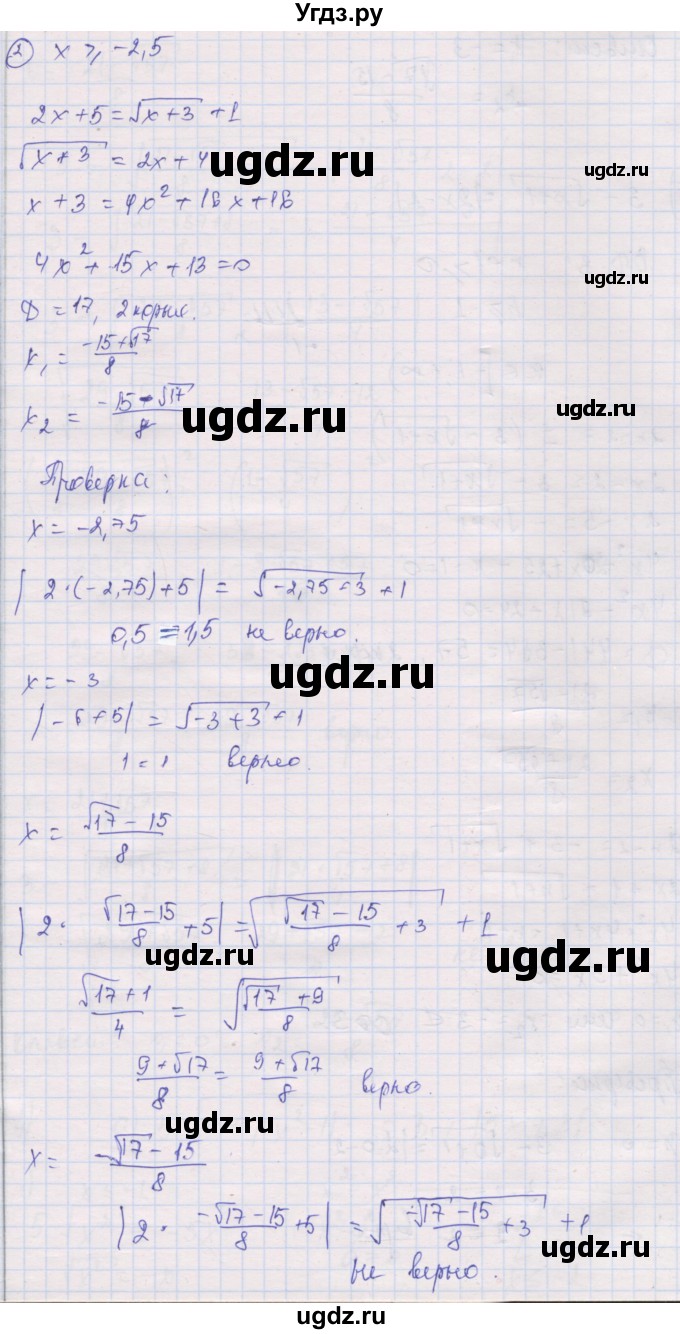 Угдз.ру
② x ⩾ -2,5
2x+5=√(x+3) +1
√(x+3) = 2x+4
ugdz.ru ugdz.ru
x+3 = 4x²+16x+16
4x²+15x+13=0
ugdz.ru
D=17, 2 корня.
x₁ = (-15+√17)/8
x₂ = (-15-√17)/8
ugdz.ru ugdz.ru
Проверка:
x = -2,75
ugdz.ru
|2·(-2,75)+5| = √(-2,75+3) +1
0,5 = 1,5 не верно.
x = -3
ugdz.ru
|-6+5| = √(-3+3) +1
1=1 верно.
ugdz.ru
x = (√17-15)/8
|2·(√17-15)/8+5| = √((√17-15)/8+3) +1
ugdz.ru ugdz.ru
(√17+1)/4 = √((√17+9)/8)
(9+√17)/8 = (9+√17)/8 верно.
ugdz.ru
x = (-√17-15)/8
|2·(-√17-15)/8+5| = √((-√17-15)/8+3) +1
ugdz.ru
Не верно.
ugdz.ru